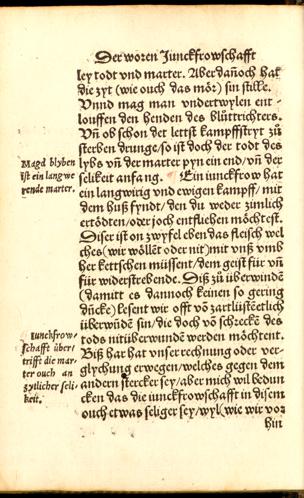 Der woren Junckfrowschafft
ley todt vnd marter. Aber dañoch hat
die zyt (wie ouch das mör) sin stille.
Vnnd mag man vndertwylen ent-
louffen den henden des blůttrichters.
Vñ ob schon der lettst kampffstryt zů
sterben drunge/so ist doch der todt des
lybs vñ der marter pyn ein end/vñ der
selikeit anfang. Ein iunckfrow hat
ein langwirig vnd ewigen kampff/mit
dem huß fyndt/den du weder zimlich
ertödten/oder joch entfliehen möchtest.
Diser ist on zwyfel eben das fleisch wel
ches (wir wöllēt oder nit) mit vnß vmb
her kettschen müssent/dem geist für vñ
für widerstrebende. Diß zů überwindē
(damitt es dannoch keinen so gering
dűcke) lesent wir offt vō zartlüsteētlich
überwūdē sin/die doch vō schreckē des
tods nit überwundē werden möchtent.
Biß har hat vnser rechnung oder ver-
glychung erwegen/welches gegem dem
andern stercker sey/aber mich wil bedun
cken das die iunckfrowschafft in disem
ouch etwas seliger sey/wyl (wie wir vor
hin
Magd blyben
ist ein langwe
rende marter.
Junckfrow-
schafft über-
trifft die mar-
ter ouch an
zytlicher seli-
keit.